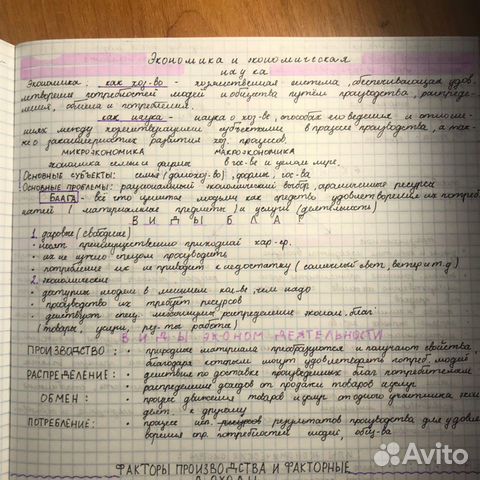 Экономика и экономическая
наука
Экономика: как хоз-во - хозяйственная система, обеспечивающая удов
летворение потребностей людей и общества путём производства, распреде-
ления, обмена и потребления.
как наука - наука о хоз-ве, способах его ведения и отноше-
ниях между хозяйствующими субъектами в процессе производства, а так-
же о закономерностях развития хоз. процессов
МИКРОЭКОНОМИКА МАКРОЭКОНОМИКА
экономика семьи и фирм в гос-ве и целом мире.
Основные субъекты: семья (домохоз-во), фирмы, гос-ва
Основные проблемы: рациональный экономический выбор, ограниченные ресурсы
БЛАГА - всё что ценится людьми как средство удовлетворения их потреб
ностей (материальные предметы) и услуги (деятельность)
ВИДЫ БЛАГ
1. даровые (свободные)
• носят преимущественно природный хар-ер.
• их не нужно спецом производить
• потребление их не приводит к недостатку (солнечный свет, ветер и т.д)
2. экономические
• доступны людям в меньшем кол-ве, чем надо
• производство их требует ресурсов
• действует спец. механизм распределения эконом. благ
(товары, услуги, рез-ты работы)
ВИДЫ ЭКОНОМ ДЕЯТЕЛЬНОСТИ
ПРОИЗВОДСТВО: • природные материалы преобразуются и получают свойства,
благодаря которым могут удовлетворять потреб. людей
РАСПРЕДЕЛЕНИЕ: • действия по доставке произведенных благ потребителям
• распределение доходов от продажи товаров и услуг
ОБМЕН: • процесс движения товаров и услуг от одного участника эком
деят. к другому
ПОТРЕБЛЕНИЕ: • процесс исп. ресурсов результатов производства для удовле
ворения опр. потребностей людей, общ-ва
ФАКТОРЫ ПРОИЗВОДСТВА И ФАКТОРНЫЕ
ДОХОДЫ
Avito